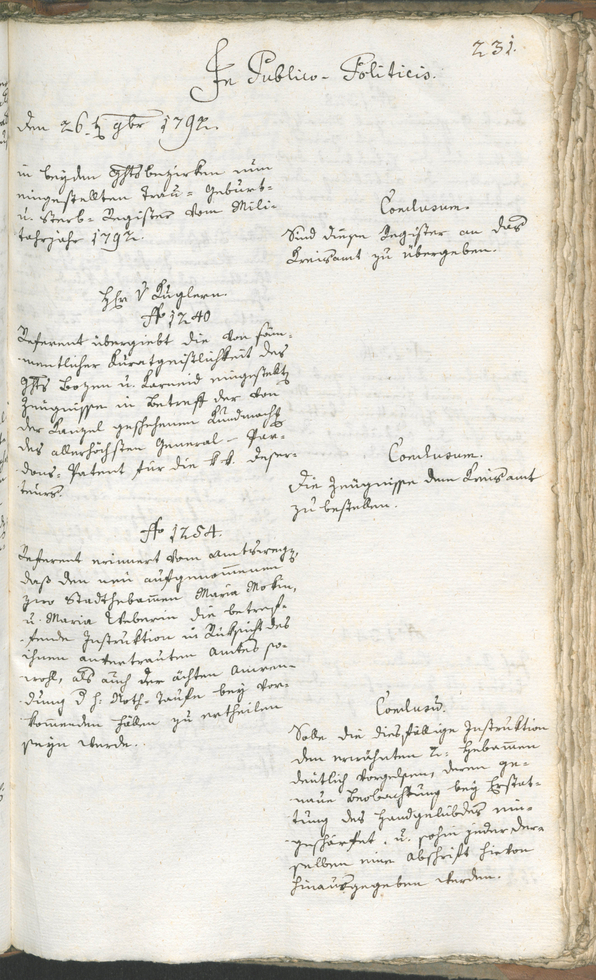 231.
In Publico-Politicis.
den 26. 9br 1792.
in beyden Ghtsbezirken nun
eingestellten Trau- Geburt-
u. Sterb-Register vom Mili-
tarjahr 1792.
Conclusum.
Sind diese Register an das
Kreisamt zu übergeben.
Hr. v Kuglern.
No 1240
Referent übergiebt die von säm-
mentlicher Kuratgeistlichkeit des
Ghts Bozen u. Karneid eingestellte
Zeugnisse in Betreff der von
der Kanzel geschehenen Kundmachg
des allerhöchsten General-Par-
dons-Patent für die k.k. Deser-
teurs.
Conclusum.
Die Zeugnisse dem Kreisamt
zu bestellen.
No 1254.
Referent erinnert vom Amtswegen,
daß den neu aufgenommenen
zwo Stadthebamen Maria
u. Maria Weberin die betref-
fende Instruktion in Rüksicht des
ihnen anvertrauten Amtes so-
wohl, als auch der ächten Anwen-
dung d h: Noth-Taufe bey vor-
kommenden Fällen zu ertheilen
seyn werde.
Conclusum.
Solle die diesfällige Instruktion
den erwähnten 2. Hebamen
deutlich vorgelesen, deren ge-
naue Beobachtung bey Erstat-
tung des Handgelübdes ein-
geschärfet, u. sohin jeder der-
selben eine Abschrift hievon
hinausgegeben werden.